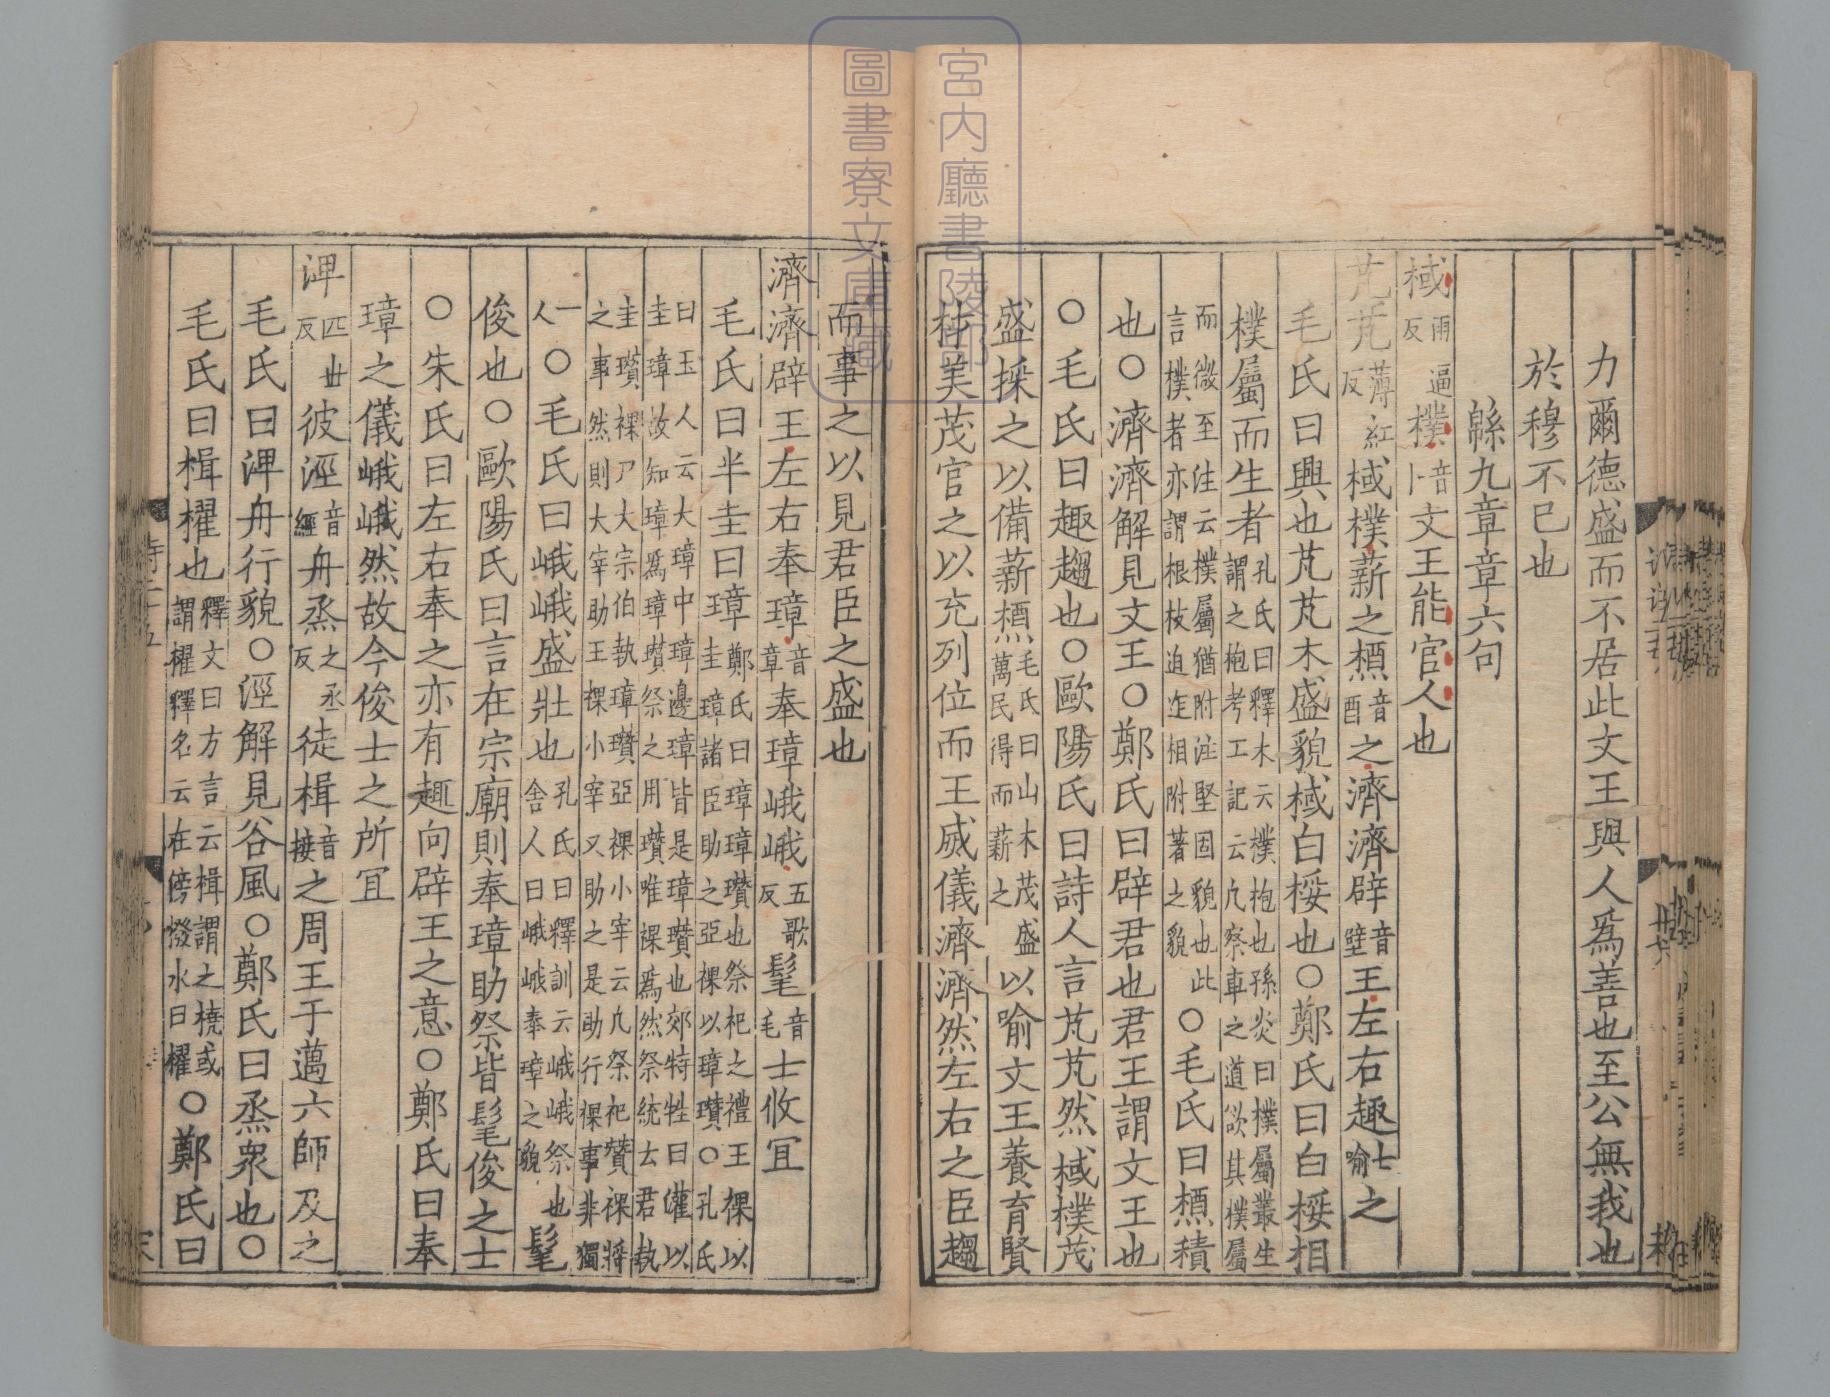 力爾德盛而不居此文王與人爲善也至公無我也
於穆不已也
緜九章章六句
棫雨逼反樸音卜文王能官人也
芃芃薄紅反棫樸薪之槱音酉之濟濟辟音壁王左右趣七喻之
毛氏曰興也芃芃木盛貌棫白桵也○鄭氏曰白桵相
樸屬而生者孔氏曰釋木云樸抱也孫炎曰樸屬叢生謂之抱考工記云凡察車之道欲其樸屬
而微至注云樸屬猶附注堅固貌也此言樸者亦謂根枝迫迮相附著之貌○毛氏曰槱積
也○濟濟解見文王○鄭氏曰辟君也君王謂文王也
○毛氏曰趣趨也○歐陽氏曰詩人言芃芃然棫樸茂
盛採之以備薪槱毛氏曰山木茂盛萬民得而薪之以喻文王養育賢
材美茂官之以充列位而王威儀濟濟然左右之臣趨
而事之以見君臣之盛也
濟濟辟王左右奉璋音章奉璋峨峨五歌反髦音毛士攸宜
毛氏曰半圭曰璋鄭氏曰璋璋瓚也祭祀之禮王祼以圭璋諸臣助之亞祼以璋瓚○孔氏
曰玉人云大璋中璋邊璋皆是璋瓚也郊特牲曰灌以圭璋故知璋爲璋瓚祭之用瓚唯祼爲然祭統云君執
圭瓚祼尸大宗伯執璋瓚亞祼小宰云凡祭祀贊祼將之事然則大宰助王祼小宰又助之是助行祼事非獨
一人○毛氏曰峨峨盛壯也孔氏曰釋訓云峨峨祭也舍人曰峨峨奉璋之貌髦
俊也○歐陽氏曰言在宗廟則奉璋助祭皆髦俊之士
○朱氏曰左右奉之亦有趣向辟王之意○鄭氏曰奉
璋之儀峨峨然故今俊士之所宜
淠匹世反彼涇音經舟烝之丞反徒楫音接之周王于邁六師及之
毛氏曰淠舟行貌○涇解見谷風○鄭氏曰烝衆也○
毛氏曰楫櫂也釋文曰方言云楫謂之橈或謂櫂釋名云在傍撥水曰櫂○鄭氏曰
宮內廳書陵部
圖書寮文庫藏